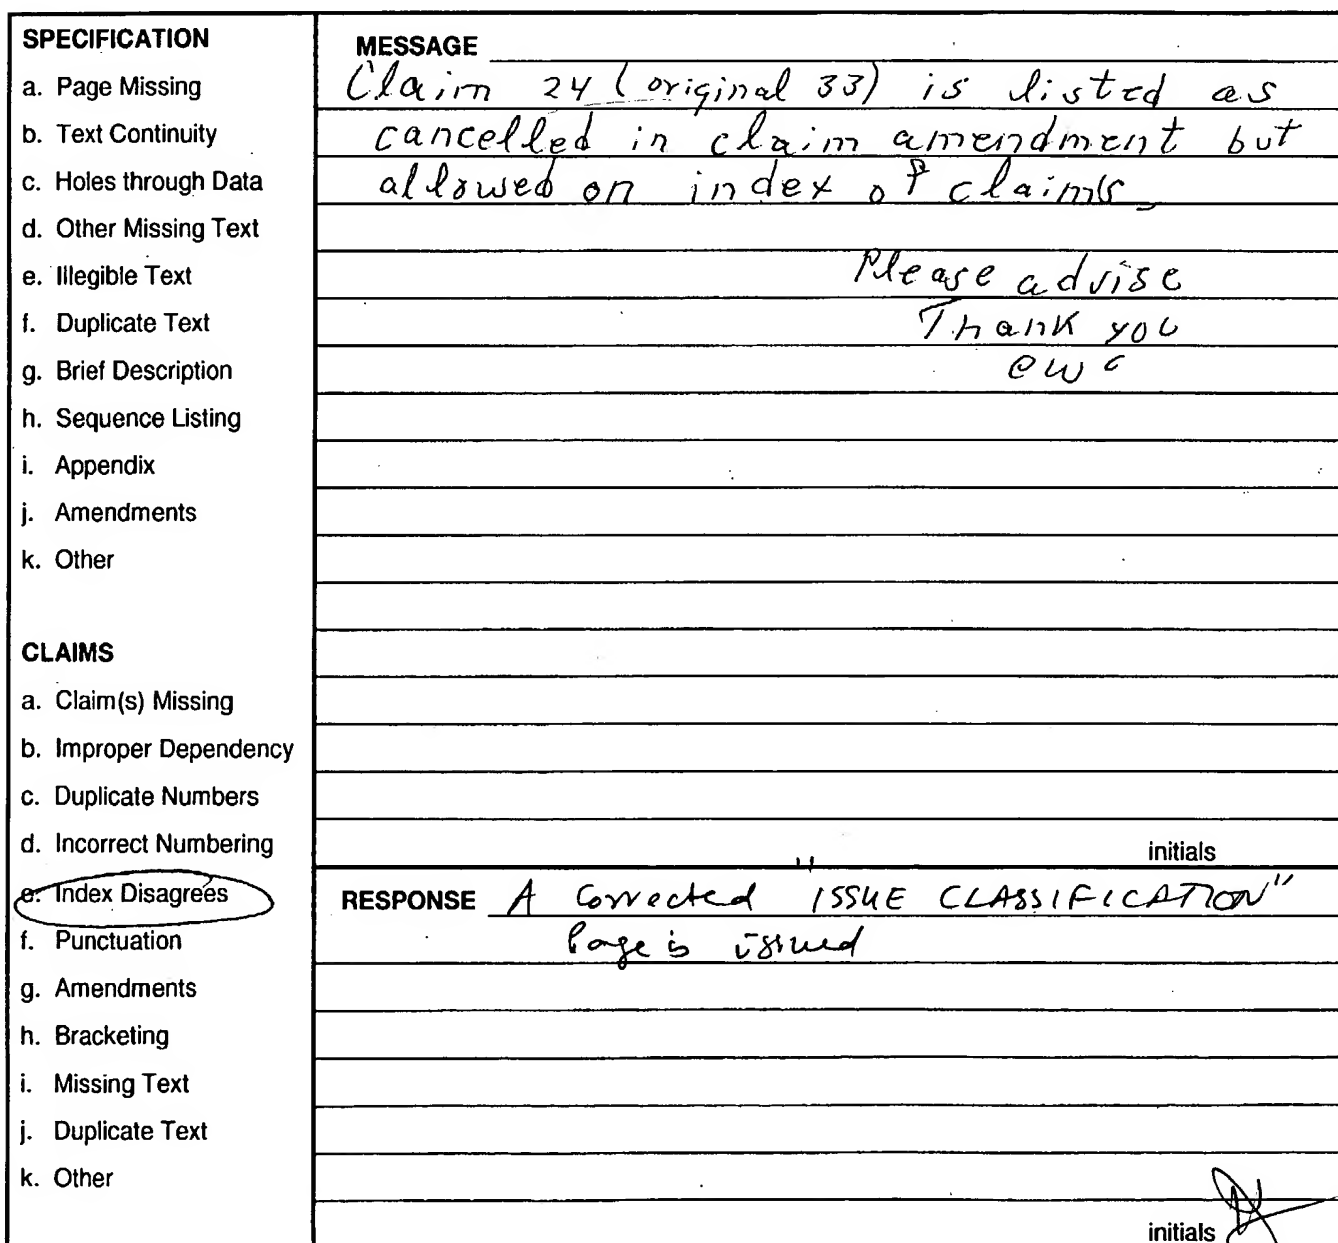 SPECIFICATION
a. Page Missing
b. Text Continuity
c. Holes through Data
d. Other Missing Text
e. Illegible Text
f. Duplicate Text
g. Brief Description
h. Sequence Listing
i. Appendix
j. Amendments
k. Other
CLAIMS
a. Claim(s) Missing
b. Improper Dependency
c. Duplicate Numbers
d. Incorrect Numbering
e. Index Disagrees
f. Punctuation
g. Amendments
h. Bracketing
i. Missing Text
j. Duplicate Text
k. Other
MESSAGE
Claim 24 (original 33) is listed as
cancelled in claim amendment but
allowed on index of claims.
Please advise
Thank you
initials
RESPONSE A corrected "ISSUE CLASSIFICATION"
Page is issued
initials